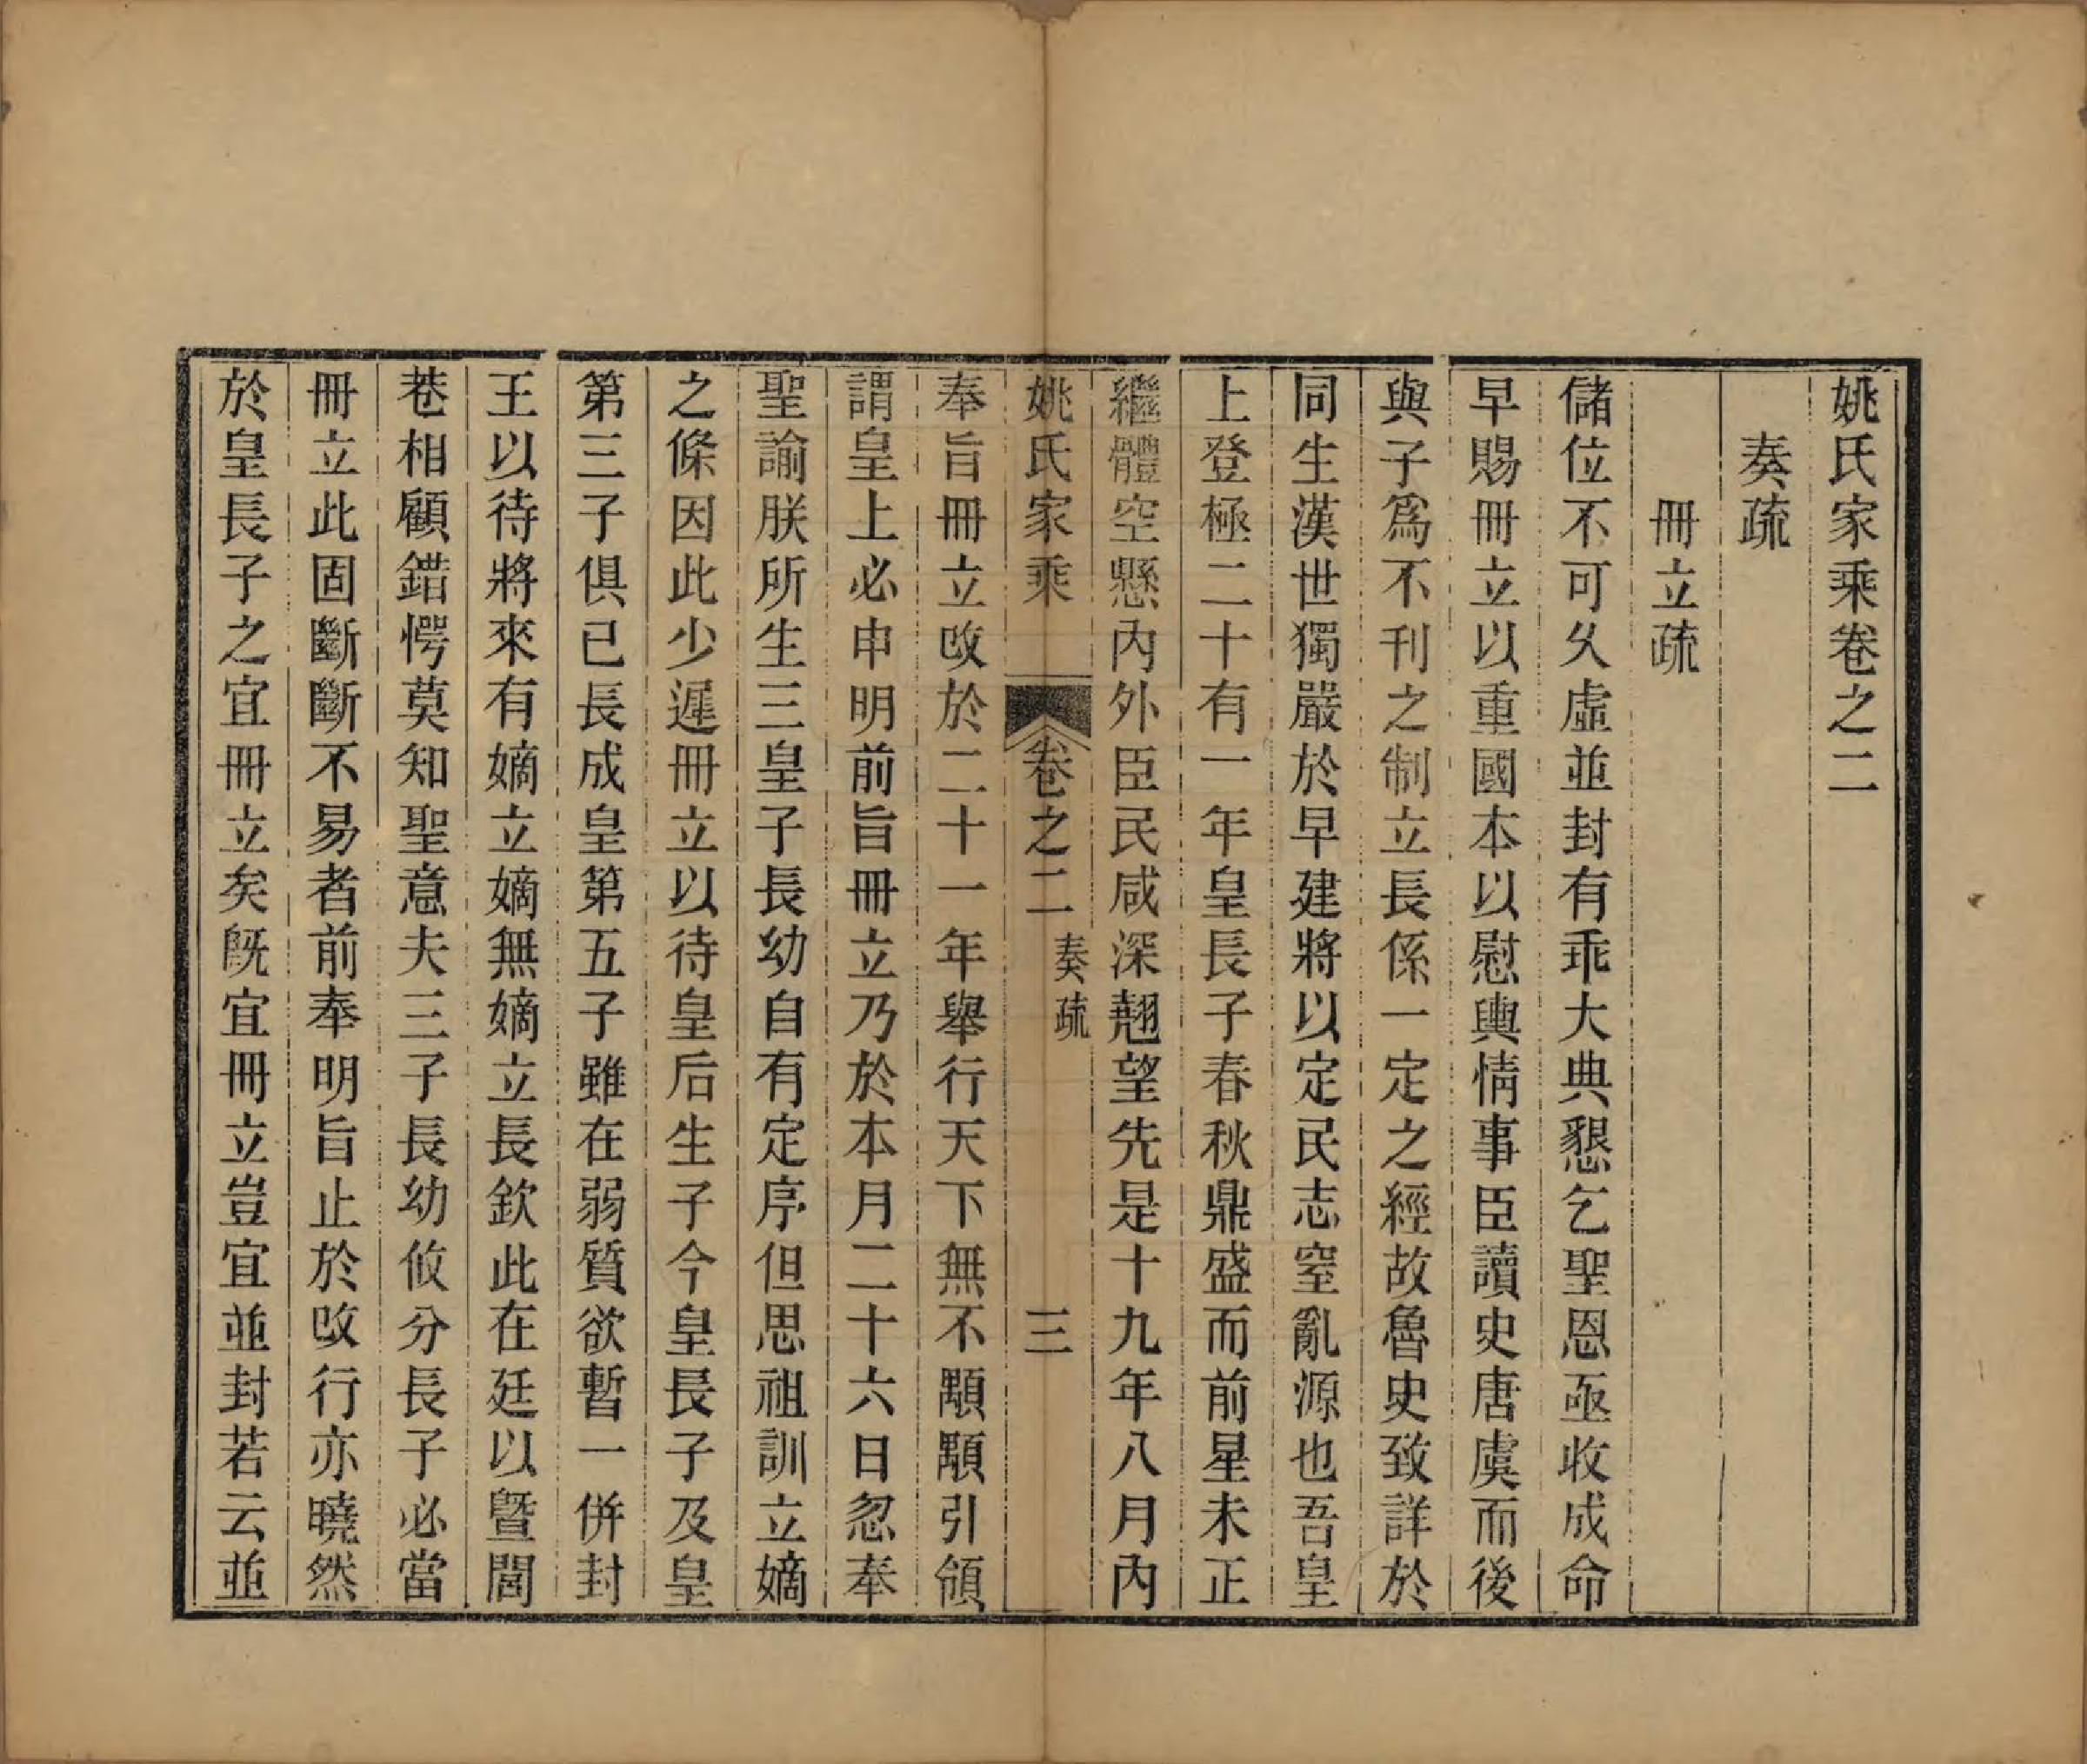 姚氏家乘卷之二
奏疏
冊立疏
儲位不可久虛並封有乖大典懇乞聖恩亟收成命
早賜冊立以重國本以慰輿情事臣讀史唐虞而後
與子爲不刊之制立長係一定之經故魯史致詳於
同生漢世獨嚴於早建將以定民志窒亂源也吾皇
上登極二十有一年皇長子春秋鼎盛而前星未正
繼體空懸內外臣民咸深翹望先是十九年八月內
姚氏家乘 卷之二 奏疏 三
奉旨冊立改於二十一年舉行天下無不顒顒引領
謂皇上必申明前旨冊立乃於本月二十六日忽奉
聖諭朕所生三皇子長幼自有定序但思祖訓立嫡
之條因此少遲冊立以待皇后生子今皇長子及皇
第三子俱已長成皇第五子雖在弱質欲暫一併封
王以待將來有嫡立嫡無嫡立長欽此在廷以曁閭
巷相顧錯愕莫知聖意夫三子長幼攸分長子必當
冊立此固斷斷不易者前奉明旨止於改行亦曉然
於皇長子之宜冊立矣旣宜冊立豈宜並封若云並